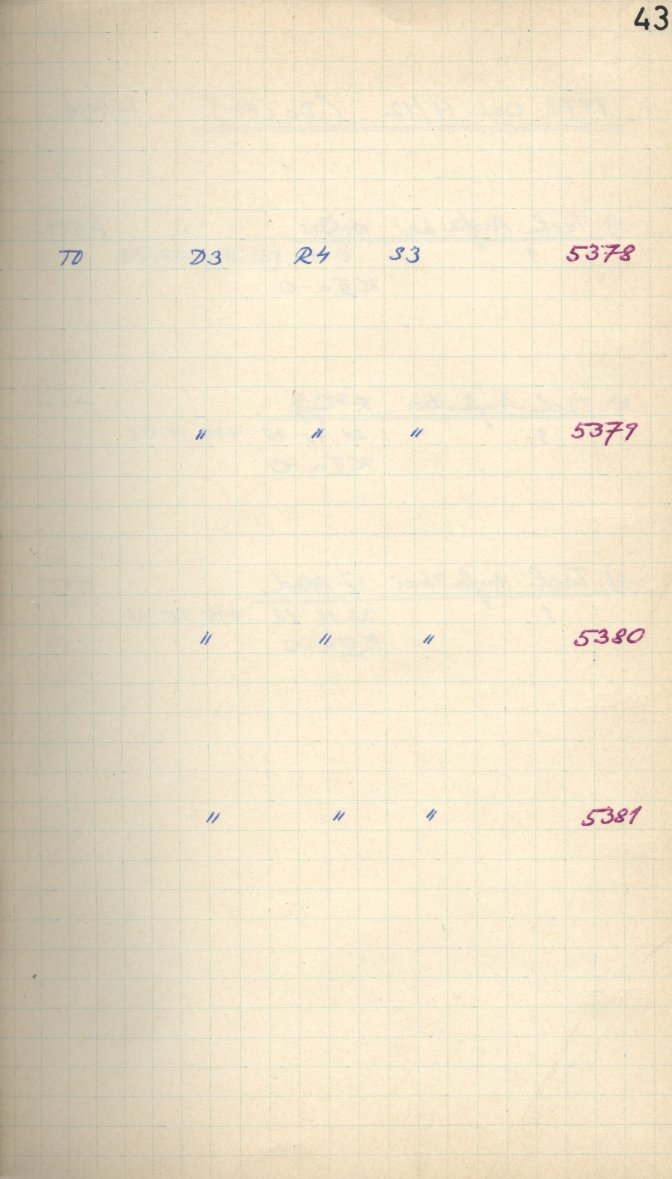 43
T0 D3 R4 S3 5378
〃 〃 〃 5379
〃 〃 〃 5380
〃 〃 〃 5381